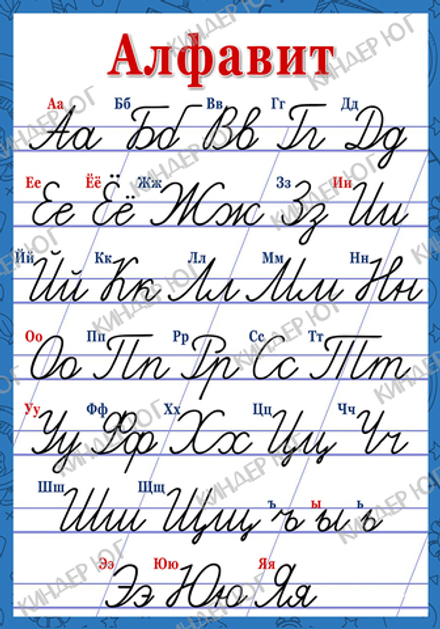 Алфавит
Аа Бб Вв Гг Дд
Аа Бб Вв Гг Дд
Ее Ёё Жж Зз Ии
Ее Ёё Жж Зз Ии
Йй Кк Лл Мм Нн
Йй Кк Лл Мм Нн
Оо Пп Рр Сс Тт
Оо Пп Рр Сс Тт
Уу Фф Хх Цц Чч
Уу Фф Хх Цц Чч
Шш Щщ ъ ы ь
Шш Щщ ъ ы ь
Ээ Юю Яя
Ээ Юю Яя
КИНДЕР ЮГ
КИНДЕР ЮГ
КИНДЕР ЮГ
КИНДЕР ЮГ
КИНДЕР ЮГ
КИНДЕР ЮГ
КИНДЕР ЮГ
КИНДЕР ЮГ
КИНДЕР ЮГ
КИНДЕР ЮГ
КИНДЕР ЮГ
КИНДЕР ЮГ
КИНДЕР ЮГ